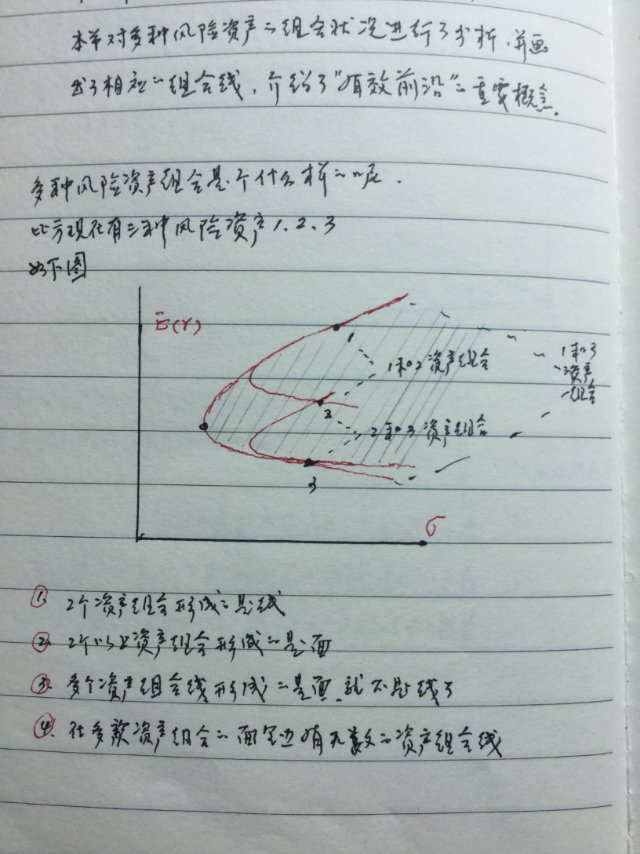 本节对多种风险资产的组合状况进行了分析，并画
出了相应的组合线，介绍了“有效前沿”的重要概念。
多种风险资产组合是个什么样的呢．
比方现在有三种风险资产1、2、3
如下图
E(r)
1
1和2资产组合
1和3
资产
组合
2
2和3资产组合
3
σ
① 2个资产组合形成的是线
② 2个以上资产组合形成的是面
③ 多个资产组合线形成的是面，就不是线了
④ 在多数资产组合的面里边有无数的资产组合线